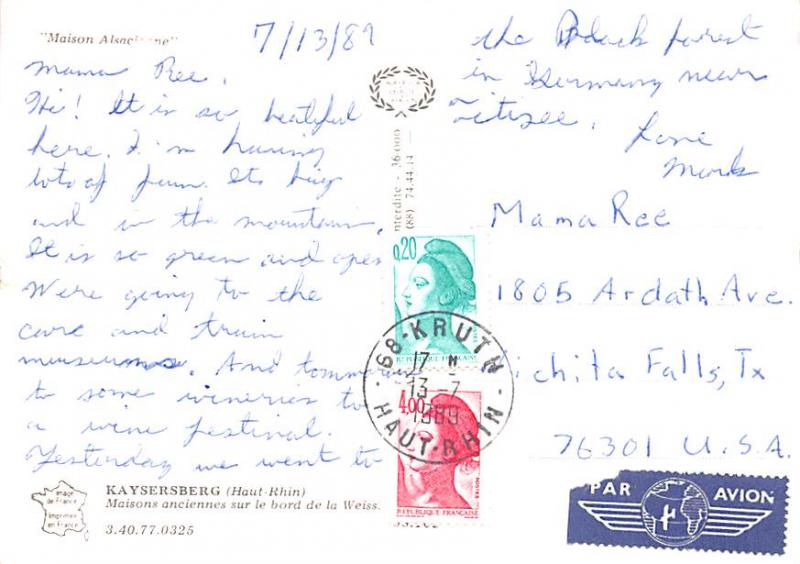 "Maison Alsacienne"
7/13/89
Mama Ree,
Hi! It is so beatiful
here. I'm having
lots of fun. Its big
and in the mountains.
It is so green and open
We're going to the
care and train
museums. And tommorow
to some wineries to
a wine festival.
Yesterday we went to
the Black forest
in Germany near
Titisee. Love
Mark
Mama Ree
1805 Ardath Ave.
Wichita Falls, Tx
76301 U.S.A.
nterdite - 36 000
(88) 74.44.14 —
0,20
REPUBLIQUE FRANÇAISE
68-KRUTH
17 H
13-7
1989
HAUT-RHIN
4,00
REPUBLIQUE FRANÇAISE
PAR AVION
Image
de France
Imprimée
en France
KAYSERSBERG (Haut-Rhin)
Maisons anciennes sur le bord de la Weiss.
3.40.77.0325